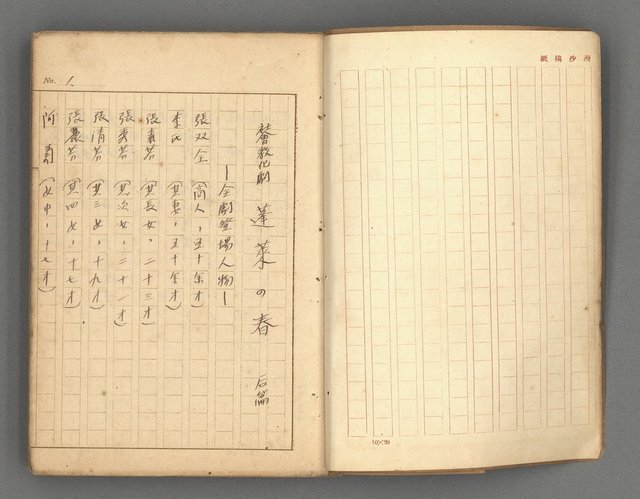 漫沙稿紙
10×20
No. 1
社會教化劇 蓬萊の春 后篇
—全劇登場人物—
張双全 (商人,五十余才)
李氏 (其妻,五十余才)
張素芬 (其長女,二十三才)
張秀芬 (其次女,二十一才)
張清芬 (其三女,十九才)
張麗芬 (其四女,十七才)
阿菊 (女中,十七才)